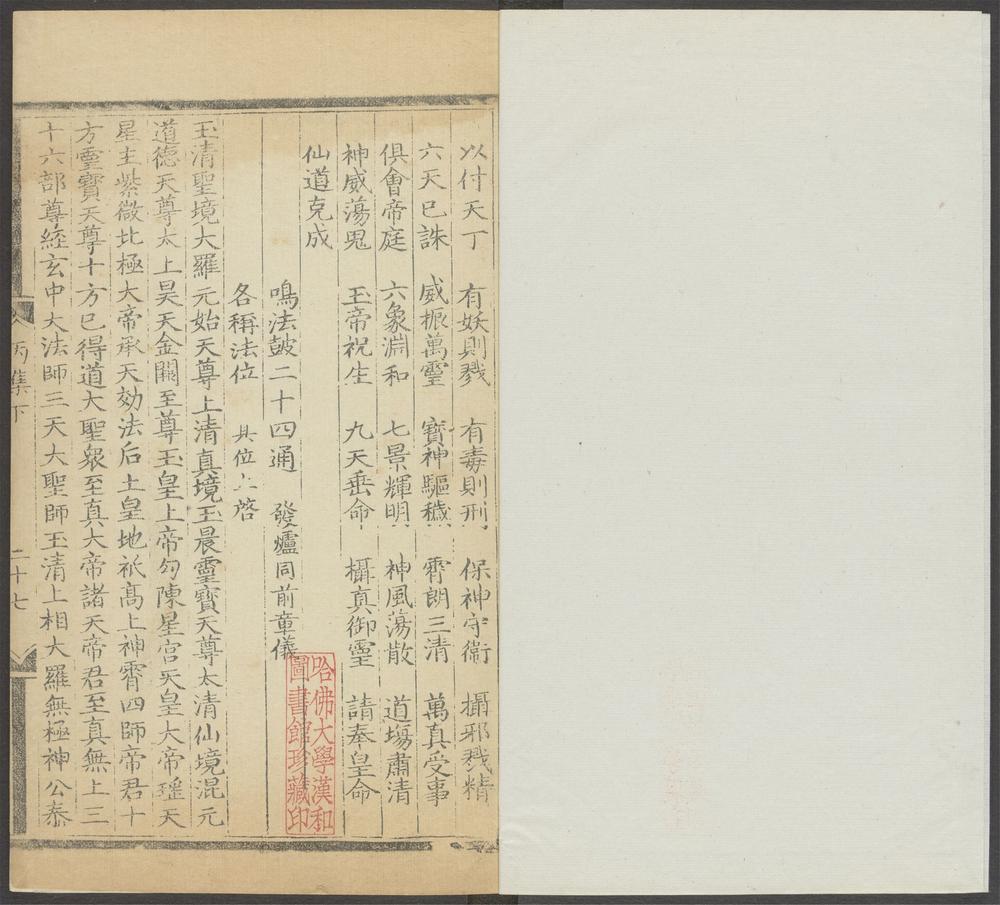 以付天丁　有妖則戮　有毒則刑　保神守衛　攝邪䤥精
六天已誅　威振萬靈　寶神驅穢　齊朗三清　萬真受事
俱會帝庭　六象淵和　七景輝明　神風蕩散　道場肅清
神威蕩鬼　玉帝祝生　九天垂命　攝真御靈　請奉皇命
仙道克成
鳴法皷二十四通　發爐同前童儀
各稱法位　具位上啓
玉清聖境大羅元始天尊上清真境玉晨靈寶天尊太清仙境混元
道德天尊太上昊天金闕至尊玉皇上帝勾陳星宮天皇大帝瑶天
星主紫微北極大帝承天効法后土皇地祇高上神霄四師帝君十
方靈寶天尊十方已得道大聖衆至真大帝諸天帝君至真無上三
十六部尊經玄中大法師三天大聖師玉清上相大羅無極神公泰
丙集下
二十七
哈佛大學漢和
圖書館珍藏印